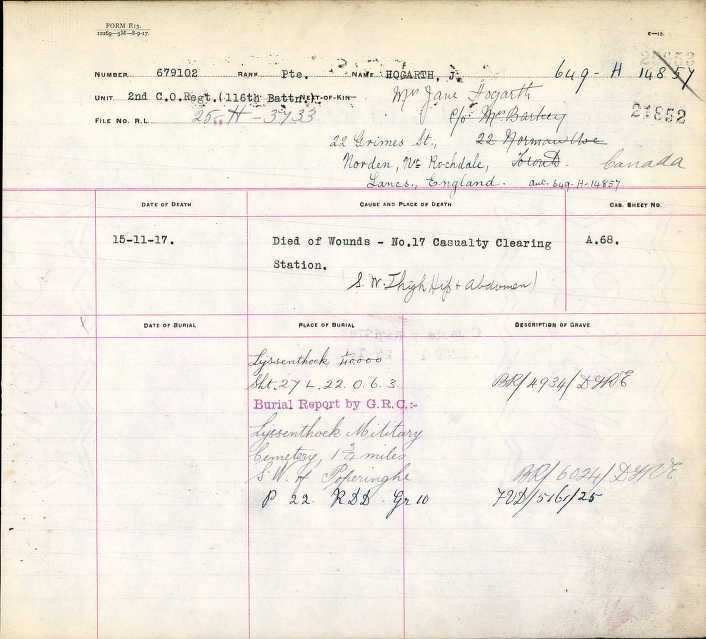 FORM E15.
12269—5M—8-9-17.
E—15.
NUMBER 679102 RANK Pte. NAME HOGARTH, J. 649-H 14857
UNIT 2nd C.O.Regt.(116th Battn.) NEXT-OF-KIN Mrs Jane Hogarth
c/o Mrs Barkey 21852
FILE NO. R.L. 25-H-3733
22 Grimes St., 22 Norman Ave
Norden, Nr. Rochdale, Toronto. Canada
Lancs., England. aut. 649-H-14857
DATE OF DEATH CAUSE AND PLACE OF DEATH CAS. SHEET NO.
15-11-17. Died of Wounds - No.17 Casualty Clearing A.68.
Station.
(S.W. Thigh Hip & Abdomen)
DATE OF BURIAL PLACE OF BURIAL DESCRIPTION OF GRAVE
Lyssenthoek 40000
Sht. 27 L. 22. 0. 6. 3. BR/4934/
Burial Report by G.R.C:-
Lyssenthoek Military
Cemetery, 1¾ miles
S.W. of Poperinghe BR/6024/
P 22 RDD. Gr 10 /5161/25